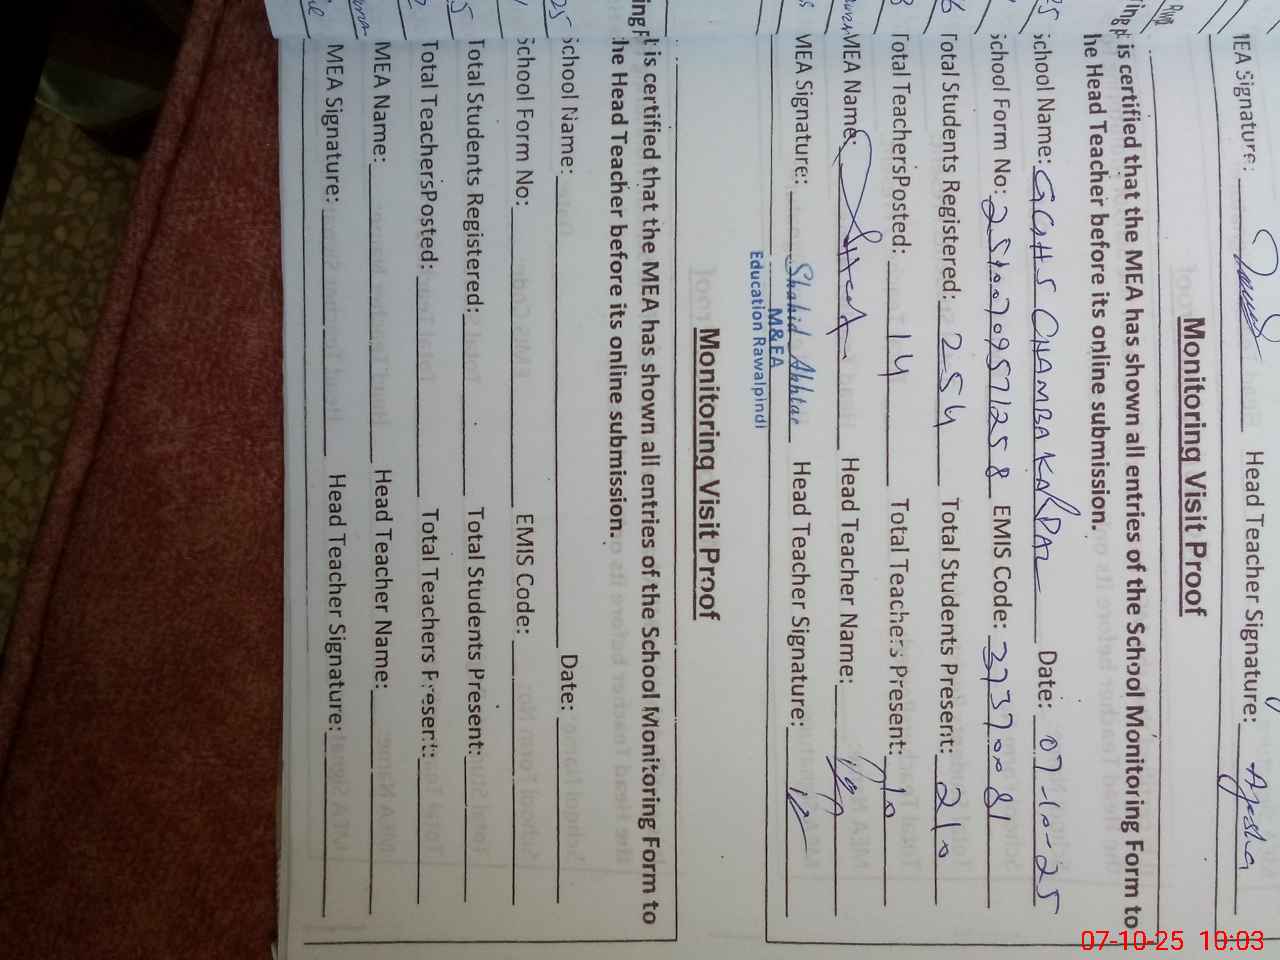 MEA Signature: Head Teacher Signature: Ayesha
Monitoring Visit Proof
t is certified that the MEA has shown all entries of the School Monitoring Form to
he Head Teacher before its online submission.
School Name: GGHS CHAMBA KARPAL Date: 07-10-25
School Form No: EMIS Code: 37370081
Total Students Registered: 254 Total Students Present: 210
Total TeachersPosted: 14 Total Teachers Present: 10
MEA Name: Head Teacher Name:
MEA Signature: Shahid Akhtar Head Teacher Signature:
M&EA
Education Rawalpindi
Monitoring Visit Proof
t is certified that the MEA has shown all entries of the School Monitoring Form to
he Head Teacher before its online submission.
School Name: Date:
School Form No: EMIS Code:
Total Students Registered: Total Students Present:
Total TeachersPosted: Total Teachers Present:
MEA Name: Head Teacher Name:
MEA Signature: Head Teacher Signature:
07-10-25 10:03